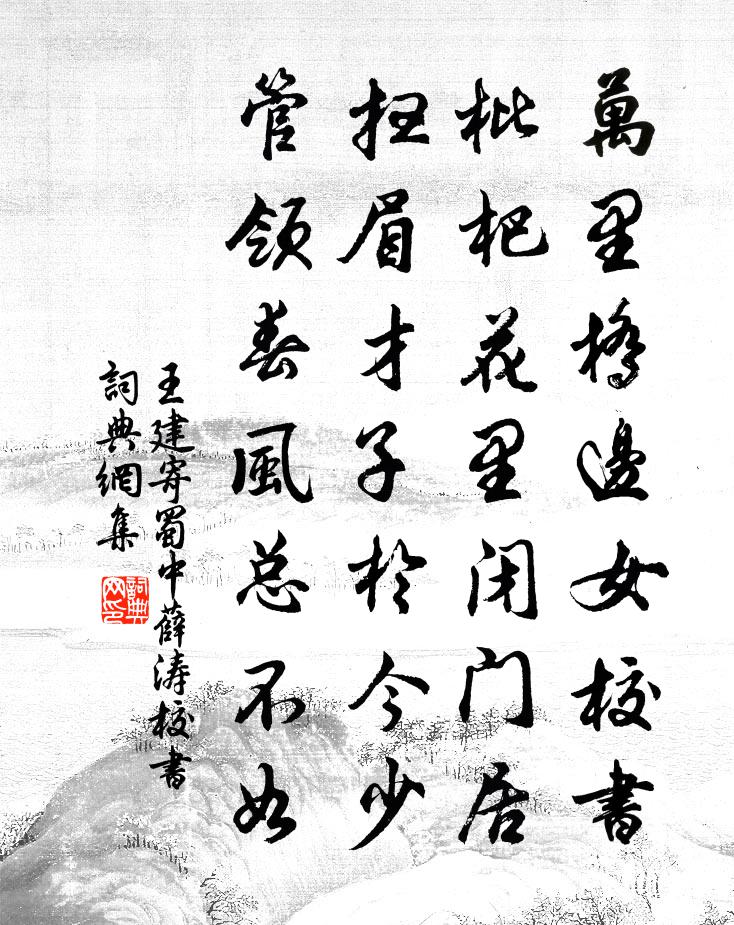 萬里橋邊女校書
枇杷花里闭门居
扫眉才子於今少
管领春風总不如
王建寄蜀中薛涛校書
詞典網集
詞典网印